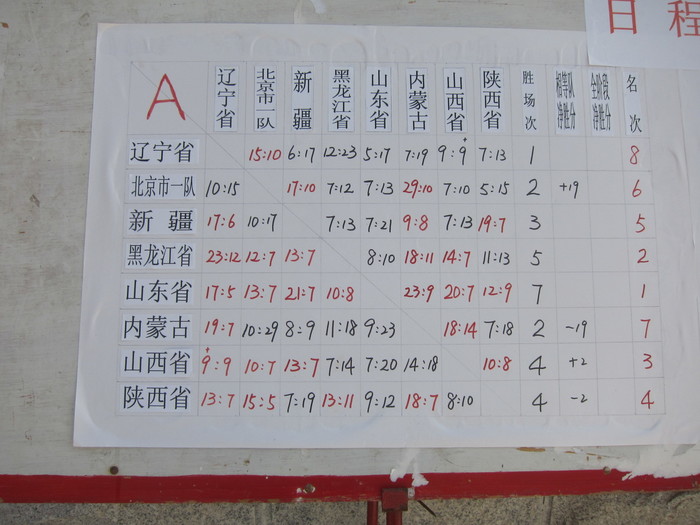 日程
A 辽宁省 北京市一队 新疆 黑龙江省 山东省 内蒙古 山西省 陕西省 胜场次 相等队净胜分 全阶段净胜分 名次
辽宁省 15:10 6:17 12:23 5:17 7:19 9:9 7:13 1 8
北京市一队 10:15 17:10 7:12 7:13 29:10 7:10 5:15 2 +19 6
新疆 17:6 10:17 7:13 7:21 9:8 7:13 19:7 3 5
黑龙江省 23:12 12:7 13:7 8:10 18:11 14:7 11:13 5 2
山东省 17:5 13:7 21:7 10:8 23:9 20:7 12:9 7 1
内蒙古 19:7 10:29 8:9 11:18 9:23 18:14 7:18 2 -19 7
山西省 9:9 10:7 13:7 7:14 7:20 14:18 10:8 4 +2 3
陕西省 13:7 15:5 7:19 13:11 9:12 18:7 8:10 4 -2 4